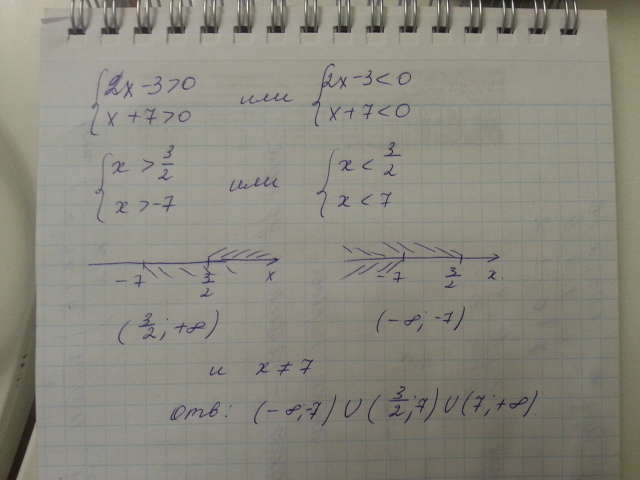 {2x-3>0 или {2x-3<0
x+7>0 x+7<0
{x>3/2 или {x<3/2
x>-7 x<7
-7 3/2 x -7 3/2 x
(3/2; +∞) (-∞; -7)
и x≠7
Отв: (-∞;-7) ∪ (3/2;7) ∪ (7;+∞)